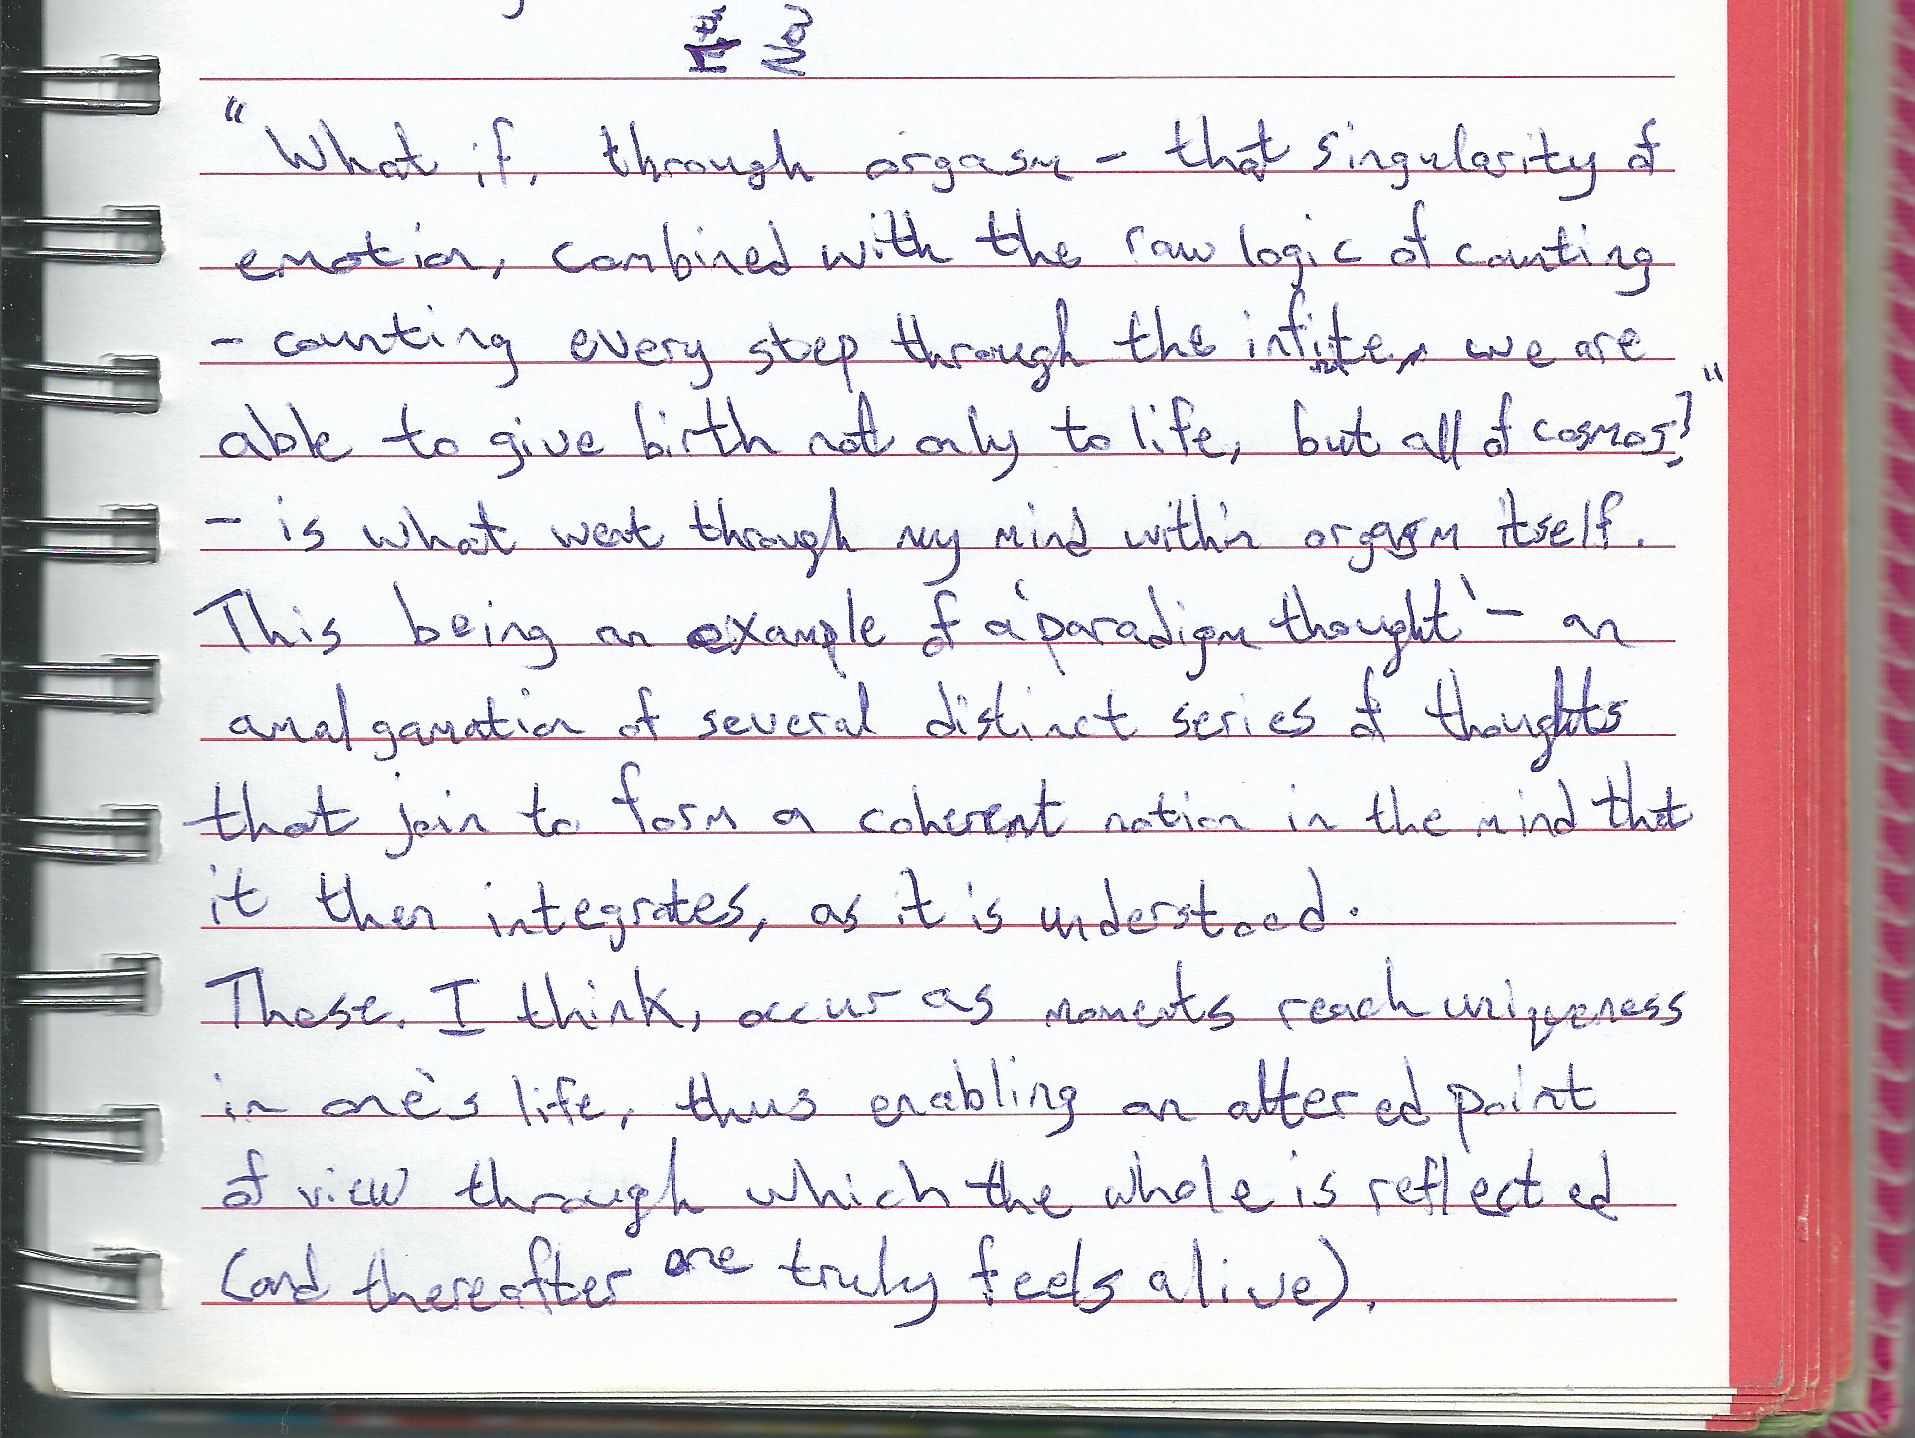 "What if, through orgasm - that singularity of
emotion, combined with the raw logic of counting
- counting every step through the infinite, we are
able to give birth not only to life, but all of cosmos?"
- is what went through my mind within orgasm itself.
This being an example of a 'paradigm thought' - an
amalgamation of several distinct series of thoughts
that join to form a coherent notion in the mind that
it then integrates, as it is understood.
These, I think, occur as moments reach uniqueness
in one's life, thus enabling an altered point
of view through which the whole is reflected
(and thereafter one truly feels alive).